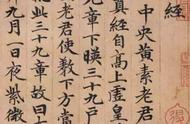 中央黃素老君
真經自高上虛皇
老君使教下方當
九章下暎三十九戶
此三十九章故曰
九月一日夜紫微